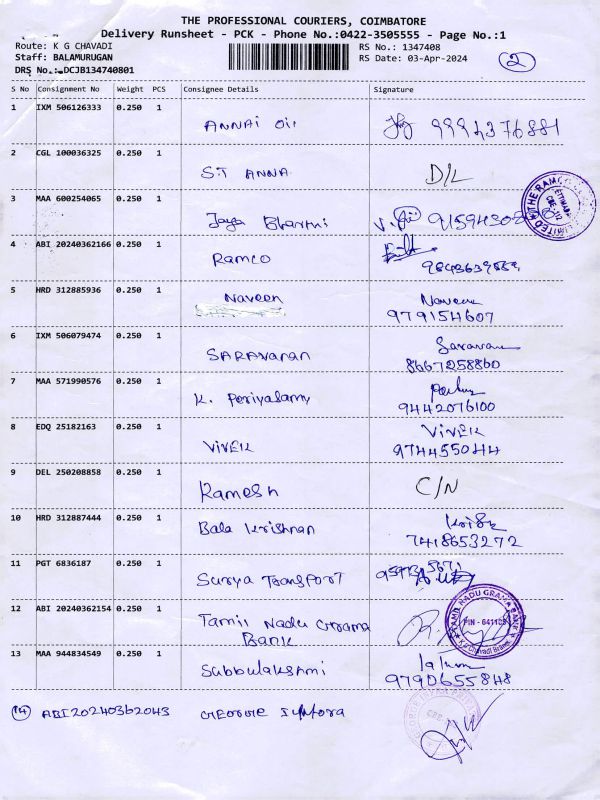 THE PROFESSIONAL COURIERS, COIMBATORE
Delivery Runsheet - PCK - Phone No.:0422-3505555 - Page No.:1
Route: K G CHAVADI RS No.: 1347408
Staff: BALAMURUGAN RS Date: 03-Apr-2024 2
DRS No.: DCJB134740801
S No Consignment No Weight PCS Consignee Details Signature
1 IXM 506126333 0.250 1 ANNAI Oil
2 CGL 100036325 0.250 1 S.T ANNA D/L
3 MAA 600254065 0.250 1 Jaya Bharthi
4 ABI 20240362166 0.250 1 RAMCO
5 HRD 312885936 0.250 1 Naveen Naveen
979154607
6 IXM 506079474 0.250 1 SARAVANAN Saravanan
8667258860
7 MAA 571990576 0.250 1 K. Periyasamy
9442076100
8 EDQ 25182163 0.250 1 VIVEK VIVEK
974455044
9 DEL 250208858 0.250 1 Ramesh C/N
10 HRD 312887444 0.250 1 Bala Krishnan
7418653272
11 PGT 6836187 0.250 1 Surya Transport
12 ABI 20240362154 0.250 1 Tamil Nadu Grama
Bank
TAMIL NADU GRAMA BANK
13 MAA 944834549 0.250 1 Subbulakshmi
9790655848
14 ABI20240362043 George